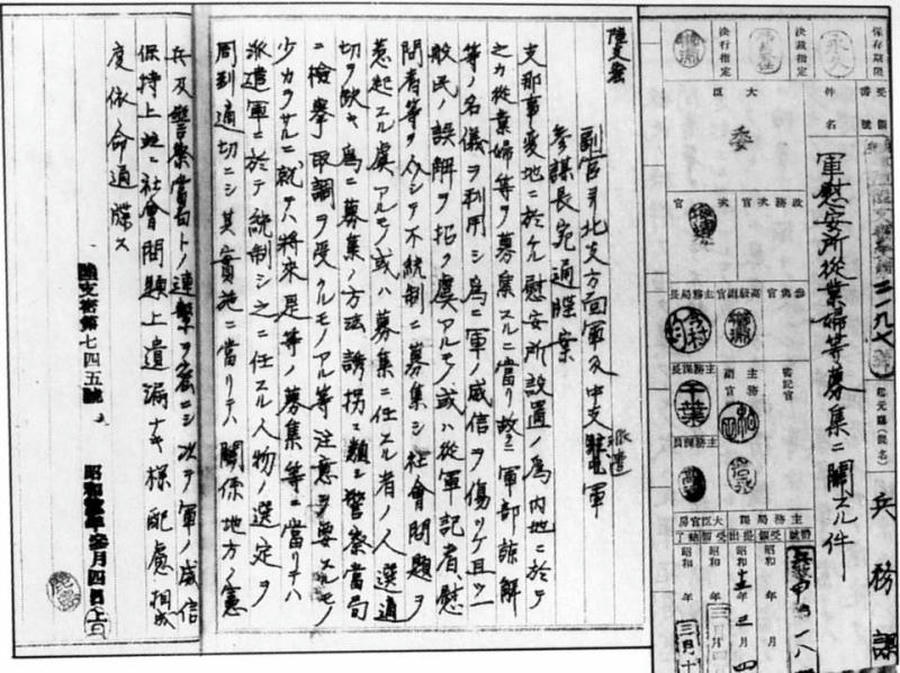 保存期限
永久
決裁指定
決行指定
受領番號
件名
軍慰安所從業婦等募集ニ關スル件
大臣
委
政務次官
次官
梅津
參與官
高級副官
主務局長
今村
書記官
主務副官
主務課長
主務課員
兵務課
大臣官房
主務局課
昭和 年 月
昭和十三年三月四
昭和 年 月
昭和 年
陸支密
副官ヨリ北支方面軍及中支派遣軍
參謀長宛通牒案
支那事變地ニ於ケル慰安所設置ノ爲内地ニ於テ
之カ從業婦等ヲ募集スルニ當リ故ラニ軍部諒解
等ノ名儀ヲ利用シ爲ニ軍ノ威信ヲ傷ツケ且ツ一
般民ノ誤解ヲ招ク虞アルモノ或ハ從軍記者、慰
問者等ヲ介シテ不統制ニ募集シ社會問題ヲ
惹起スル虞アルモノ或ハ募集ニ任スル者ノ人選適
切ヲ欠キ爲ニ募集ノ方法、誘拐ニ類シ警察當局
ニ檢擧取調ヲ受クルモノアル等注意ヲ要スルモノ
少カラサルニ就テハ將來是等ノ募集等ニ當リテハ
派遣軍ニ於テ統制シ之ニ任スル人物ノ選定ヲ
周到適切ニシ其實施ニ當リテハ關係地方ノ憲
兵及警察當局トノ連繋ヲ密ニシ以テ軍ノ威信
保持上並ニ社會問題上遺漏ナキ樣配慮相成
度依命通牒ス
陸支密第七四五號
昭和拾參年參月四日